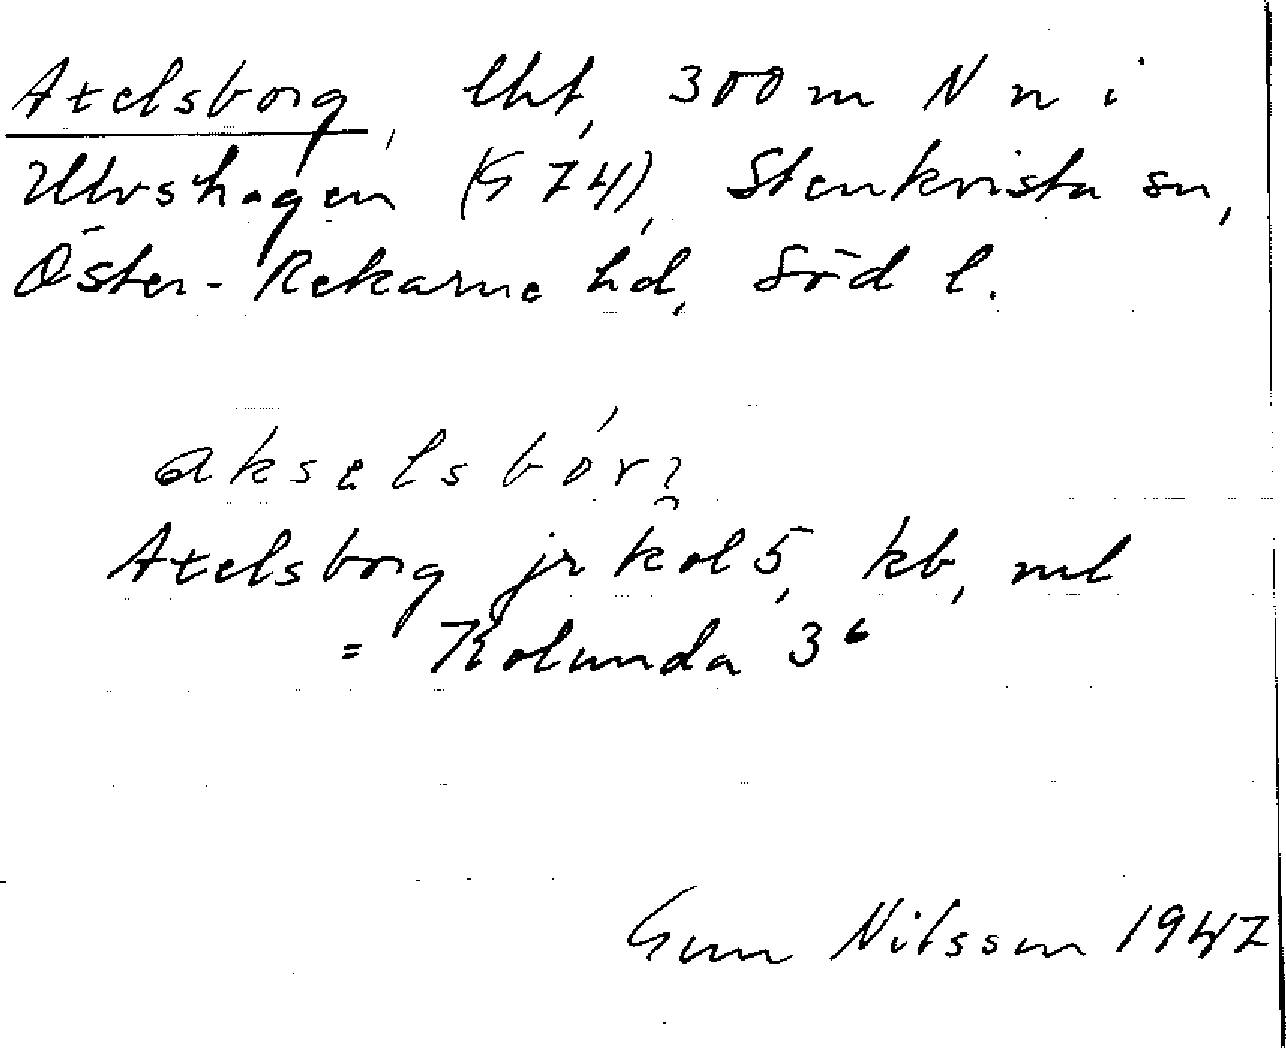 Axelsborg, lht, 300 m N n i
Ulvshagen (G 74), Stenkvista sn,
Öster-Rekarne hd, Söd l.
aksəlsbór
Axelsborg jr kol 5, kb, ml
= Kolunda 3⁶
Gun Nilsson 1947